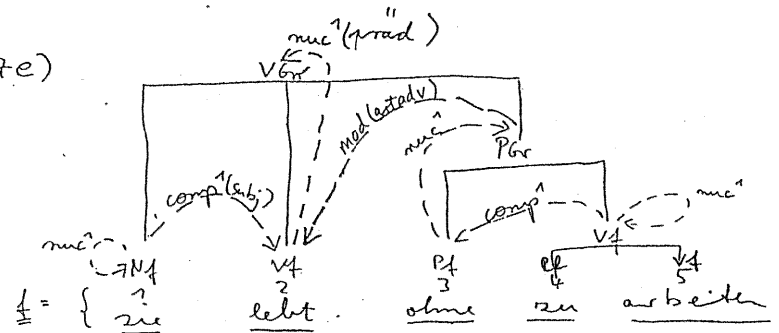 nuc¹(präd)
VGr
mod(satadv)
nuc¹
PGr
comp¹(subj)
comp¹
nuc¹
nuc¹
Nf Vf Pf Vf
ef Vf
1 2 3 4 5
f = { sie lebt ohne zu arbeiten